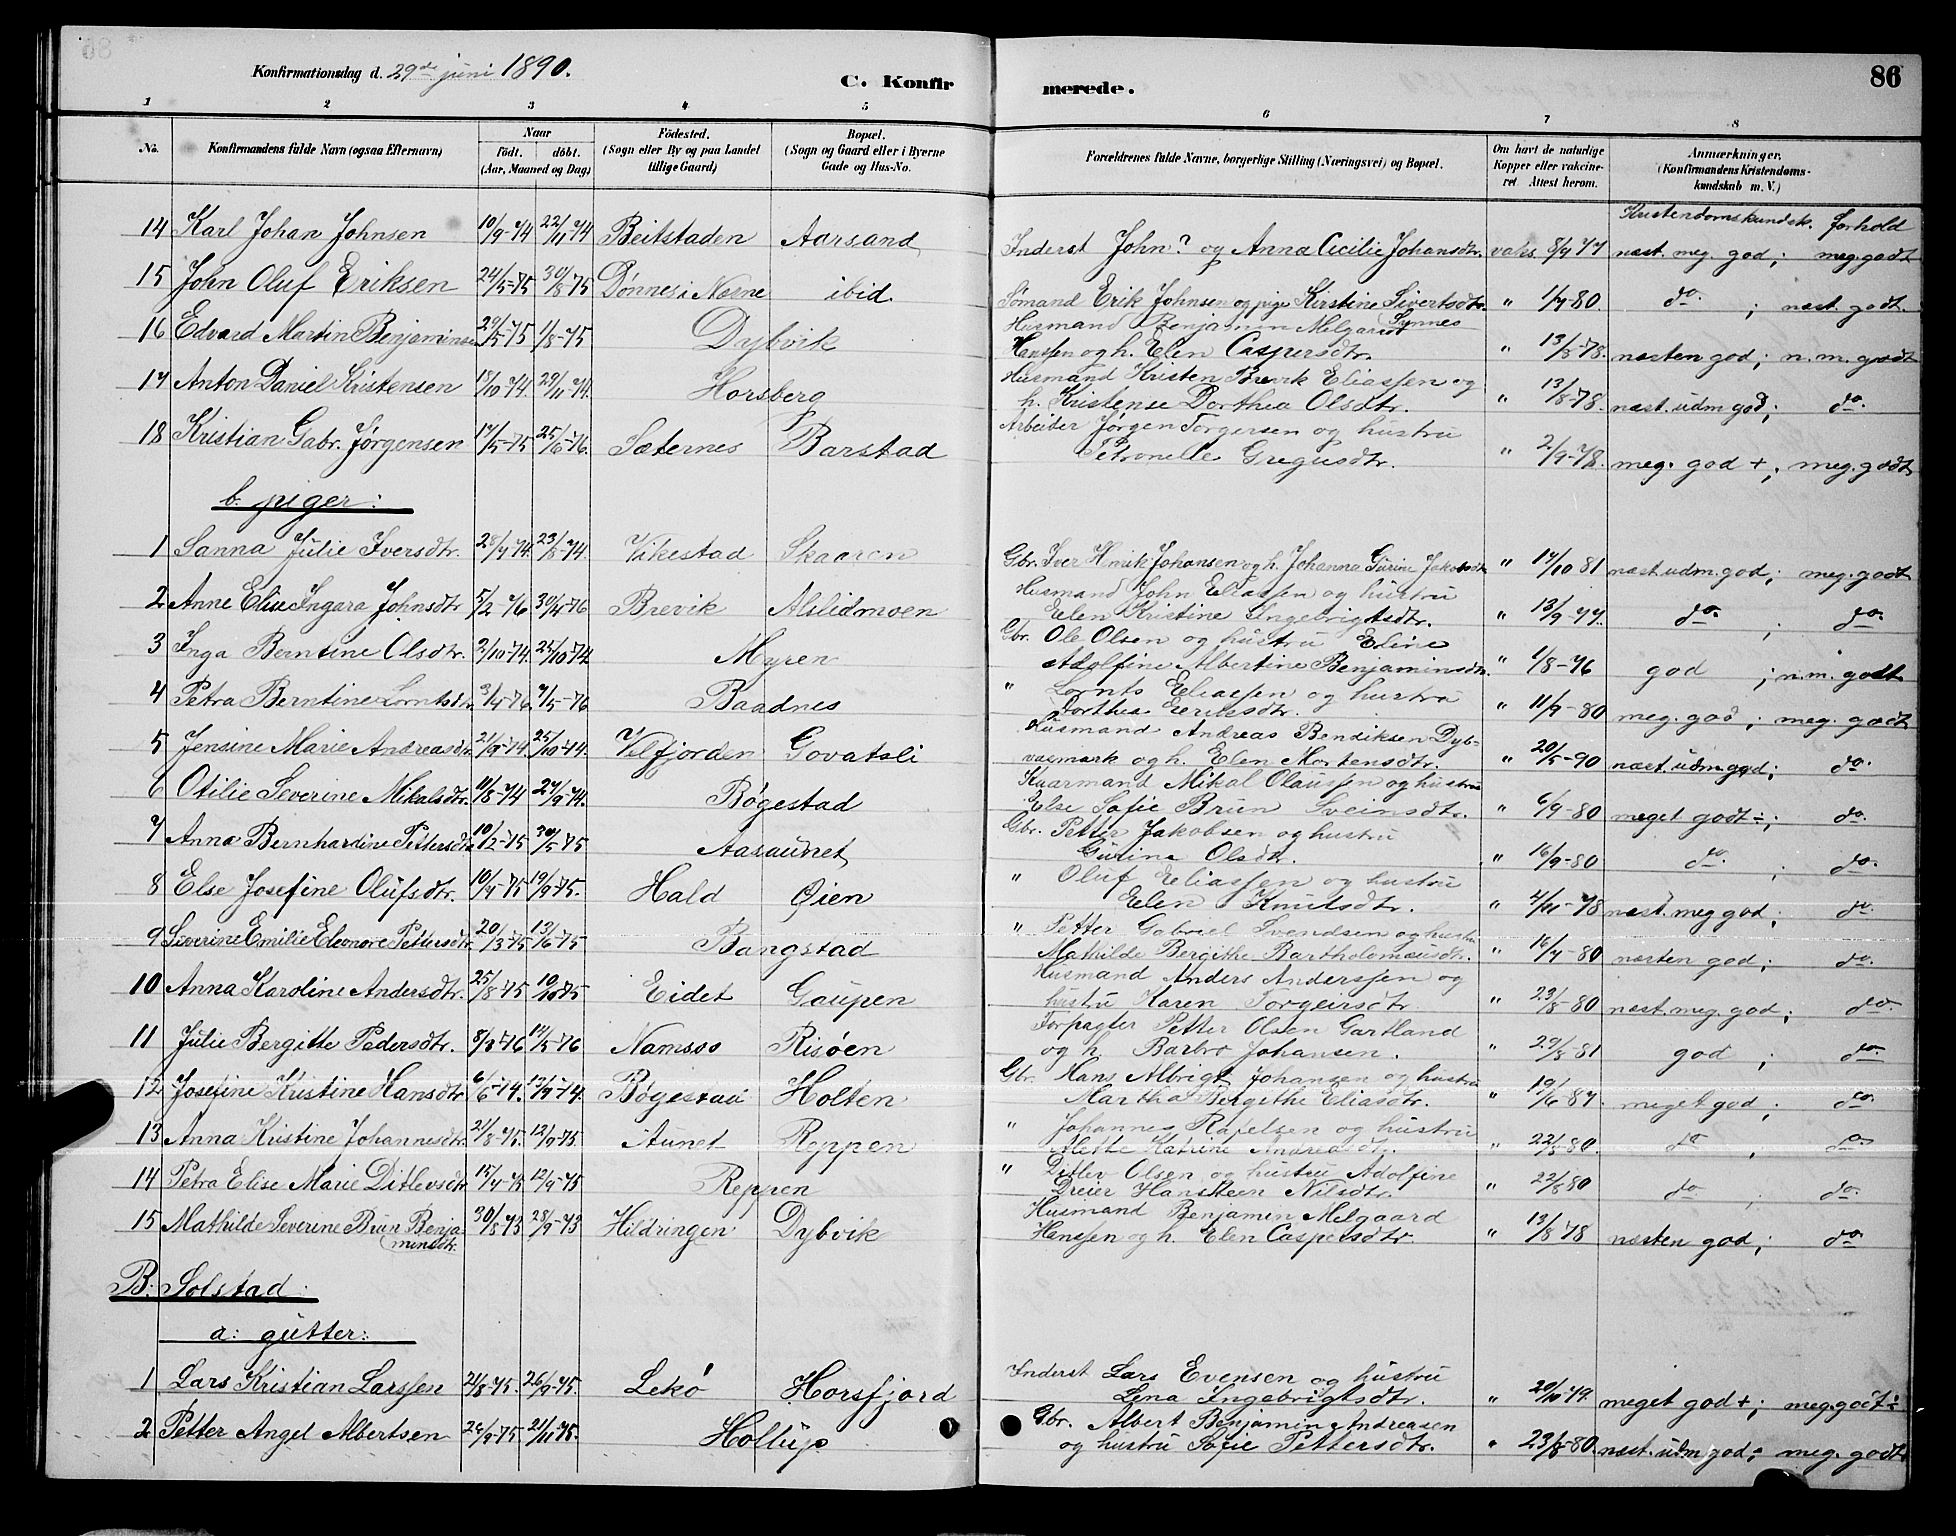 86
Konfirmationsdag d. 29de juni 1890.
C. Konfirmerede.
1 2 3 4 5 6 7 8
No. | Konfirmandens fulde Navn (ogsaa Efternavn) | Naar født. døbt. (Aar, Maaned og Dag) | Fødested. (Sogn eller By og paa Landet tillige Gaard) | Bopæl. (Sogn og Gaard eller i Byerne Gade og Hus-No. | Forældrenes fulde Navne, borgerlige Stilling (Næringsvei) og Bopæl. | Om havt de naturlige Kopper eller vakcineret. Attest herom. | Anmærkninger. (Konfirmandens Kristendomskundskab m. V.)
Kristendomskundsk. forhold
14 Karl Johan Johnsen 10/9-74 22/11 74 Beitstaden Aarsand Inderst John? og Anna Cecilie Johansdtr. vaks. 8/9 77 næst. meg. god; meg. godt
15 John Oluf Eriksen 24/5-75 30/8 75 Dønnes i Nesne ibid. Sømand Erik Johnsen og pige Kirstine Sivertsdtr. Synnes " 1/7-80 do. ; næst. godt.
16 Edvard Martin Benjaminsen 29/5-75 1/8-75 Dybvik Husmand Benjamin Melgaard
Hanssen og h. Elen Caspersdtr. " 13/8-78. næsten god; n. m. godt
17 Anton Daniel Kristensen 18/10-74. 29/11-74. Horsberg Husmand Kristen Brevik Eliassen og
h. Kristense Dorthea Olsdtr. " 13/8-78. næst. udm. god; do.
18 Kristian Gabr. Jørgensen 17/5-75 25/6-76. Sæternes Barstad Arbeider Jørgen Torgersen og hustru
Petronelle Gregusdtr. " 2/9-78. meg. god +; meg. godt
b. piger:
1 Sanna Julie Iversdtr. 28/7-74. 23/8-74. Vikestad Skaaren Gbr. Iver Hmik Johansen og h. Johanna Gurine Jakobsdtr " 17/10 81 næst. udm. god; meg. godt
2 Anne Elise Ingara Johnsdtr 5/2-76 30/4-76 Brevik Mulidmoen Husmand John Eliassen og hustru
Elen Kristine Ingebrigtsdtr. " 13/9-77. do. ; do.
3 Inga Berntine Olsdtr. 2/10-74. 25/10-74 Myren Gbr. Ole Olsen og hustru Eline
Adolfine Albertine Benjaminsdtr. " 1/8-76 god ; n. m. godt
4 Petra Berntine Lorntsdtr. 3/4-76. 7/5-76 Baadnes " Lornts Eliassen og hustru
Dorthea Eriksdtr. " 11/9-80 meg. god ; meg. godt
5 Jensine Marie Andreasdtr 21/9-74 25/10-74. Velfjorden Govatsli Husmand Andreas Bendiksen Dyb-
vasmark og h. Elen Mortensdtr. " 20/5-90 næst. udm. god; do.
6 Otilie Severine Mikalsdtr. 11/8-74 27/9-74. Bøgestad Kaarmand Mikal Olaussen og hustru
Else Sofie Brun Sveinsdtr. " 6/9-80 meget godt÷; do.
7 Anna Bernhardine Pettersdtr 10/2-75 30/5-75 Aasaunet Gbr. Petter Jakobsen og hustru
Gurina Olsdtr. " 16/9-80 do. ; do.
8 Else Josefine Olufsdtr. 10/7-75 19/9-75. Hald Øien " Oluf Eliassen og hustru
Elen Knutsdtr. " 4/11-78 næst. meg god; do.
9 Severine Emilie Eleonore Pettersdtr. 20/3-75 13/6-75 Bangstad " Petter Gabriel Svendsen og hustru
Mathilde Bergithe Bartholomæusdtr. " 16/7-80 næsten god; do.
10 Anna Karoline Andersdtr. 25/8-75 10/10-75 Eidet Gaupen Husmand Anders Anderssen og
hustru Karen Torgeirsdtr. " 23/8-80 næst. meg. god; do.
11 Julie Bergitte Pedersdtr. 8/3-76 14/5-76 Namsos Risøen Forpagter Petter Olsen Gartland
og h. Barbro Johansen. " 29/8-81 god ; do.
12 Josefine Kristine Hansdtr 6/6-74. 13/9-74. Bøgestad Holten Gbr. Hans Albrigt Johansen og hustru
Martha Bergithe Eliasdtr. " 19/6-87. meget god; do.
13 Anna Kristine Johannesdtr. 21/8-75. 12/9-75 Aunet Reppen " Johannes Rafelsen og hustru
Alette Katrine Andreasdtr. " 22/8-80. do ; do.
14 Petra Elise Marie Ditlevsdtr 15/7-75 12/9-75 Reppen " Ditlev Olsen og hustru Adolfine
Dreier Hansteen Nilsdtr. " 22/8 80 do ; do.
15 Mathilde Severine Brun Benja-
minsdtr. 30/8-73 28/9-73 Hildringen Dybvik Husmand Benjamin Melgaard
Hanssen og h. Elen Caspersdtr. " 13/8 78 næsten god; do.
B. Solstad.
a: gutter:
1 Lars Kristian Larssen 21/8-75. 26/9-75. Lekø Horsfjord Inderst Lars Evensen og hustru
Lina Ingebrigtsdtr. " 29/10-79. meget god +; meg. godt÷
2 Petter Angel Albertsen 26/9-75 21/11-75. Hollup Gbr. Albert Benjamin Andreasen
og hustru Sofie Pettersdtr. " 23/8-80. næst. udm god; meg. godt